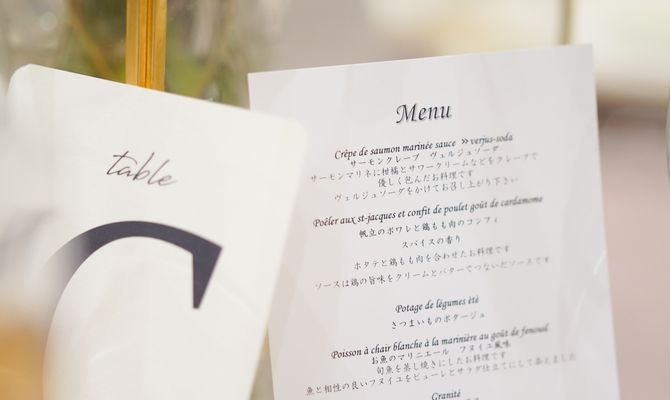 table
C
Menu
Crêpe de saumon marinée sauce » verjus-soda
サーモンクレープ　ヴェルジュソーダ
サーモンマリネに柑橘とサワークリームなどをクレープで
優しく包んだお料理です
ヴェルジュソーダをかけてお召し上がり下さい
Poêler aux st-jacques et confit de poulet goût de cardamome
帆立のポワレと鶏もも肉のコンフィ
スパイスの香り
ホタテと鶏もも肉を合わせたお料理です
ソースは鶏の旨味をクリームとバターでつないだソースです
Potage de légumes étè
さつまいものポタージュ
Poisson à chair blanche à la marinière au goût de fenouil
お魚のマリニエール　フヌイユ風味
旬魚を蒸し焼きにしたお料理です
魚と相性の良いフヌイユをピューレとサラダ仕立てにして添えました
Granité